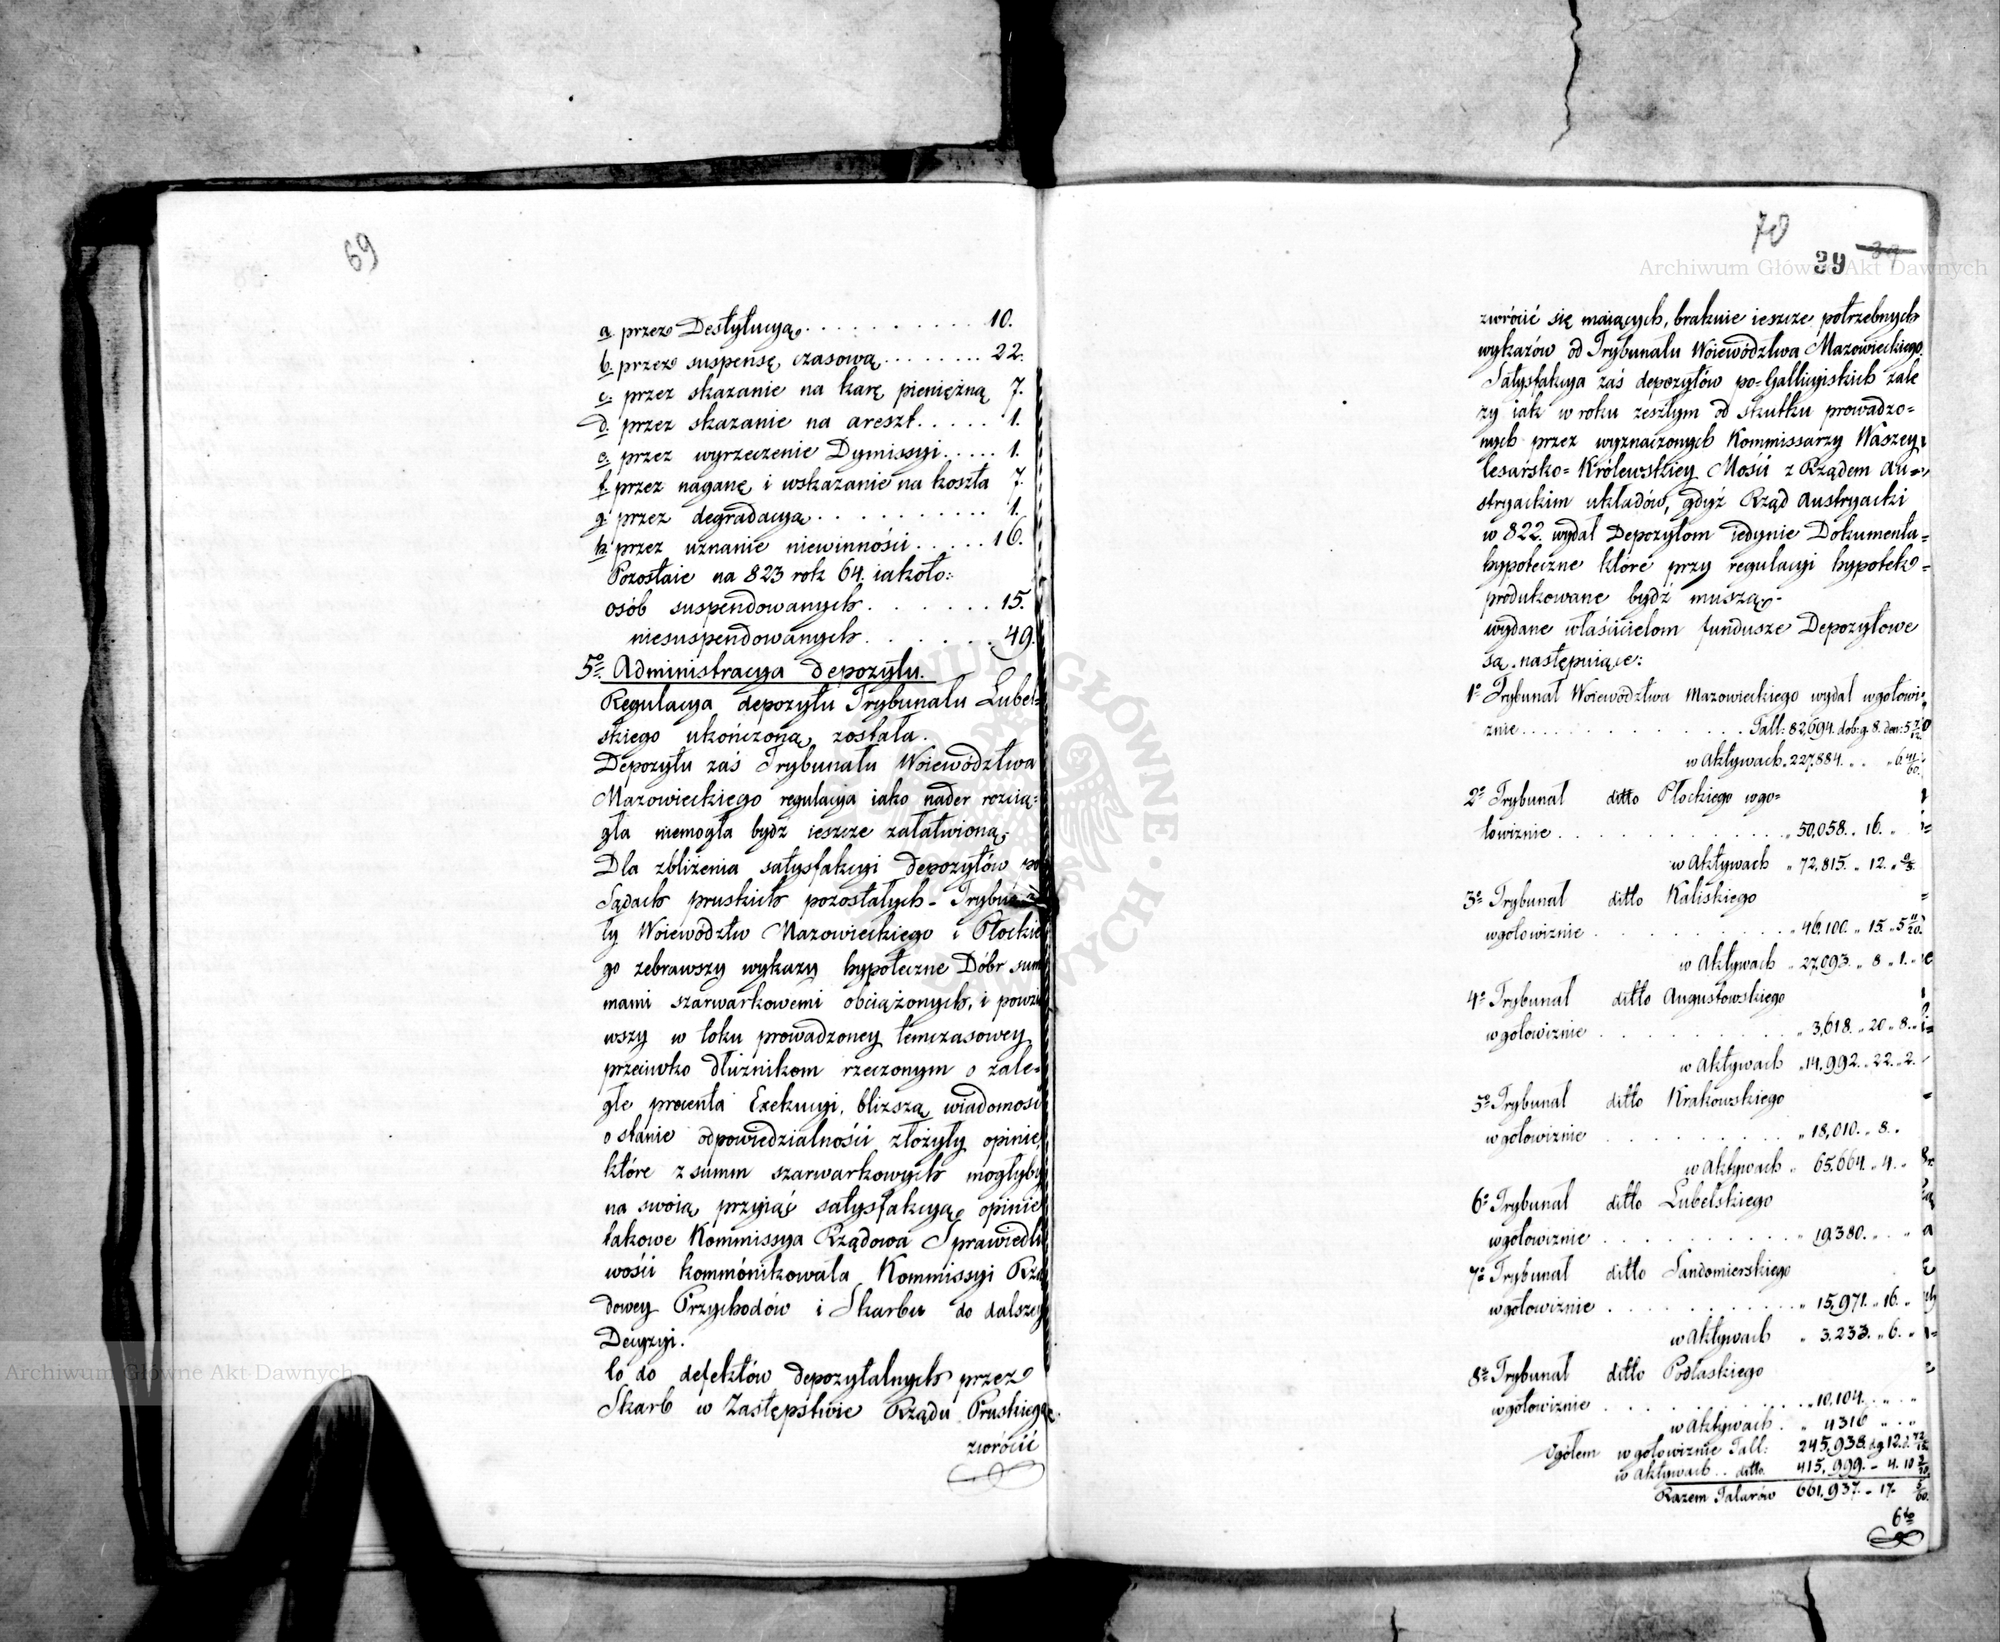 69
a. przez Destytucyą . . . . . . . . . . . 10.
b. przez suspensę czasową . . . . . . . . . 22.
c. przez skazanie na karę pieniężną 7.
d. przez skazanie na areszt . . . . . 1.
e. przez wyrzeczenie Dymissyi . . . . . 1.
f. przez naganę i wskazanie na koszta 7.
g. przez degradacyą . . . . . . . . . . . 1.
h. przez uznanie niewinności . . . . . 16.
Pozostaie na 823 rok 64. iakoto:
osób suspendowanych . . . . . . . 15.
niesuspendowanych . . . . . . . 49.
5o. Administracya depozytu.
Regulacya depozytu Trybunału Lubel-
skiego ukończoną została.
Depozytu zaś Trybunału Woiewództwa
Mazowieckiego regulacya iako nader rozcią-
gła niemogła bydź ieszcze załatwioną.
Dla zbliżenia satysfakcyi depozytów po
Sądach pruskich pozostałych - Trybuna-
ły Woiewództw Mazowieckiego i Płockie
go zebrawszy wykazy hypoteczne Dóbr sum
mami szarwarkowemi obciążonych, i powzią
wszy w toku prowadzoney temczasowey
przeciwko dłużnikom rzeczonym o zale-
głe procenta Exekucyi, bliższą wiadomość
o stanie odpowiedzialności złożyły opinie,
które z summ szarwarkowych mogłyby
na swoią przyiąć satysfakcyą, opinie
takowe Kommissya Rządowa Sprawiedli
wości kommónikowała Kommissyi Rzą
dowey Przychodów i Skarbu do dalszey
Decyzyi.
Co do defektów depozytalnych przez
Skarb w Zastępstwie Rządu Pruskiego
zwrócić
70
39 39
Archiwum Główne Akt Dawnych
zwrócić się maiących, brakuie ieszcze potrzebnych
wykazów od Trybunału Woiewództwa Mazowieckiego.
Satysfakcya zaś depozytów po-Gallicyiskich zale
ży iak w roku zeszłym od skutku prowadzo-
nych przez wyznaczonych Kommissarzy Waszey
Cesarsko-Królewskiey Mości z Rządem Au-
stryackim układów, gdyż Rząd Austryacki
w 822. wydał Depozytom iedynie Dokumenta
hypoteczne które przy regulacyi hypotek
produkowane bydź muszą.
wydane właścicielom fundusze Depozytowe
są następuiące:
1o Trybunał Woiewództwa Mazowieckiego wydał w gotowi-
znie . . . . . . . . . . Tall: 82,694. dob:g. 8. den: 5 7/12.
w Aktywach „ 227,884. „ . „ 6 41/60.
2o Trybunał ditto Płockiego w go-
towiznie . . . . . . . . . . „ 50,058. „ 16. „
w Aktywach „ 72,815. „ 12. „
3o Trybunał ditto Kaliskiego
w gotowiznie . . . . . . . „ 46,100. „ 15. „ 5 11/20.
w Aktywach „ 27,093. „ 8 „ 1. „
4o Trybunał ditto Augustowskiego
w gotowiznie . . . . . . . „ 3,618. „ 20 „ 8. „
w Aktywach „ 14,992. „ 22. „ 2.
5o Trybunał ditto Krakowskiego
w gotowiznie . . . . . . . „ 18,010. „ 8. „
w Aktywach „ 65,664. „ 4. „
6o Trybunał ditto Lubelskiego
w gotowiznie . . . . . . . „ 19,380. „ . „
7o Trybunał ditto Sandomierskiego
w gotowiznie . . . . . . . „ 15,971. „ 16. „
w Aktywach „ 3,233. „ 6. „
8o Trybunał ditto Podlaskiego
w gotowiznie . . . . . . . „ 10,104. „ . „
w Aktywach . „ 4316 „ . „
Ogółem w gotowiznie Tall: 245,938. dg. 12. d.
w Aktywach . . ditto. 415,999. - 4. 10
Razem Talarów 661,937. - 17.
6to
ARCHIWUM GŁÓWNE AKT DAWNYCH
Archiwum Główne Akt Dawnych